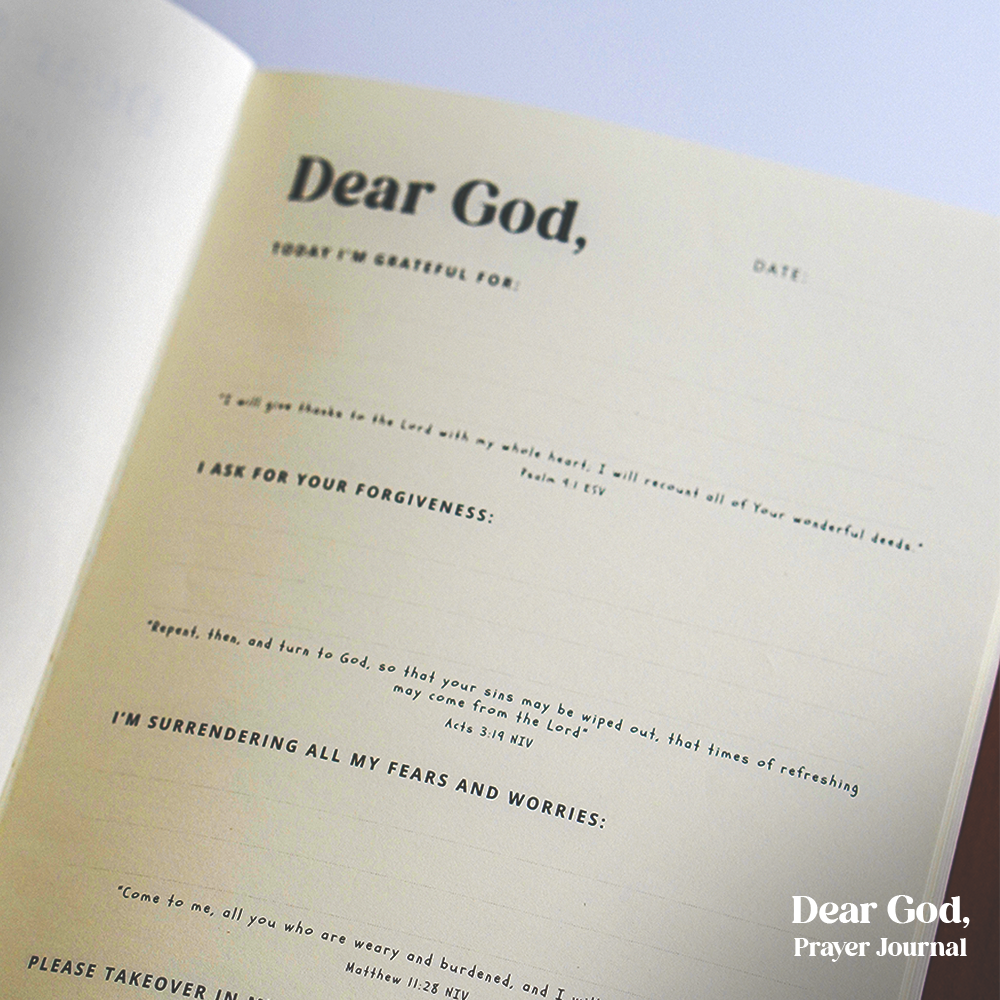 Dear God,
TODAY I'M GRATEFUL FOR:
DATE:
"I will give thanks to the Lord with my whole heart; I will recount all of Your wonderful deeds."
Psalm 9:1 ESV
I ASK FOR YOUR FORGIVENESS:
"Repent, then, and turn to God, so that your sins may be wiped out, that times of refreshing
may come from the Lord"
Acts 3:19 NIV
I'M SURRENDERING ALL MY FEARS AND WORRIES:
"Come to me, all you who are weary and burdened, and I
Matthew 11:28 NIV
PLEASE TAKEOVER IN
Dear God,
Prayer Journal